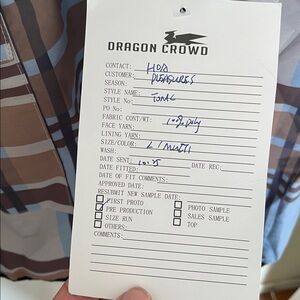 DRAGON CROWD
CONTACT: HDA
CUSTOMER: PLEASURES
SEASON:
STYLE NAME: TONAL
STYLE No:
PO No:
FABRIC CONT/WT: 100% poly
FACE YARN:
LINING YARN:
SIZE/COLOR: L / MULTI
WASH:
DATE SENT: 10.25 DATE REC:
DATE FITTED:
DATE OF FIT COMMENTS:
APPROVED DATE:
RESUBMIT NEW SAMPLE DATE:
FIRST PROTO PHOTO SAMPLE
PRE PRODUCTION SALES SAMPLE
SIZE RUN TOP
OTHERS
COMMENTS: